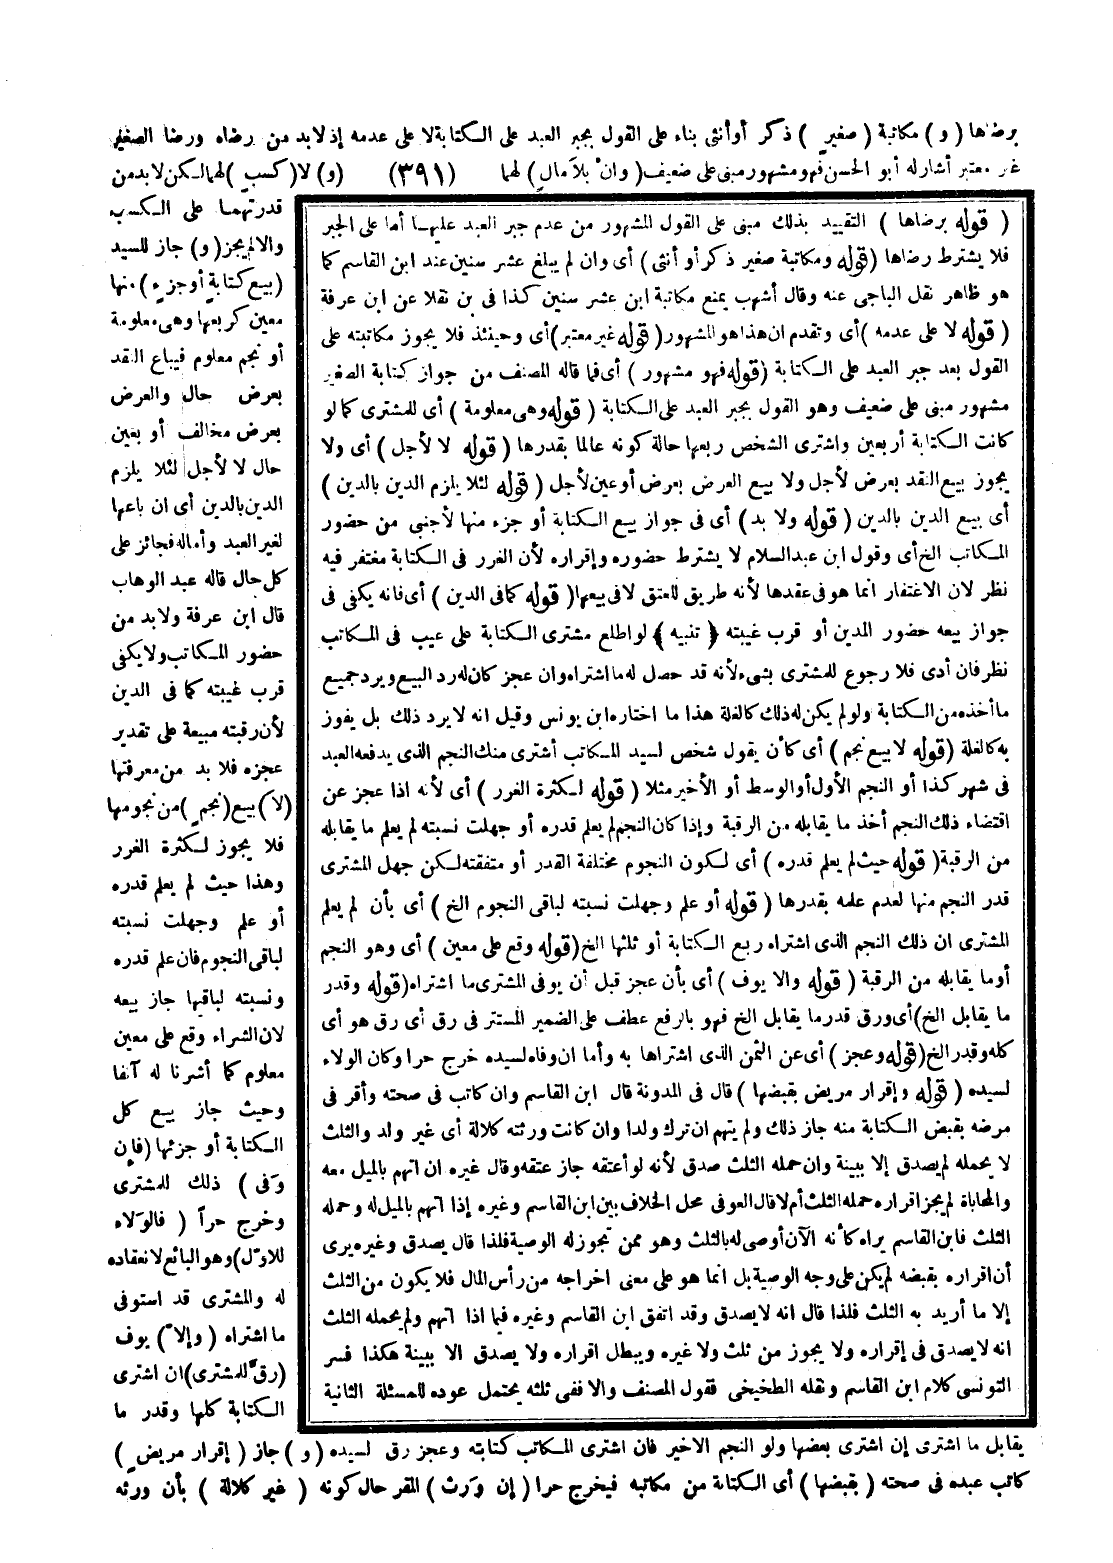 برضاها ( و ) مكاتبة ( صغير ) ذكر أو أنثى بناء على القول بجبر العبد على الكتابة لا على عدمه إذ لابد من رضاه ورضا الصغير
غير معتبر أشار له أبو الحسن فهو مشهور مبنى على ضعيف ( وان بلا مال ) لهما (٣٩١) (و) لا ( كسب ) لهما لكن لابد من
قدرتهما على الكسب
والالم يجز (و) جاز للسيد
(بيع كتابة أو جزء ) منها
معين كربعها وهى معلومة
أو نجم معلوم فيباع النقد
بعرض حال والعرض
بعرض مخالف أو بعين
حال لا لأجل لئلا يلزم
الدين بالدين أى ان باعها
لغير العبد وأما له فجائز على
كل حال قاله عبد الوهاب
قال ابن عرفة ولابد من
حضور المكاتب ولا يكفى
قرب غيبته كما فى الدين
لأن رقبته مبيعة على تقدير
عجزه فلا بد من معرفتها
(لا) بيع (نجم ) من نجومها
فلا يجوز لكثرة الغرر
وهذا حيث لم يعلم قدره
أو علم وجهلت نسبته
لباقى النجوم فان علم قدره
ونسبته لباقيها جاز بيعه
لان الشراء وقع على معين
معلوم كما أشرنا له آنفا
وحيث جاز بيع كل
الكتابة أو جزئها (فإن
وفى ) ذلك للمشترى
وخرج حراً ( فالولاء
للاول) وهو البائع لانعقاده
له والمشترى قد استوفى
ما اشتراه ( وإلا ) يوف
(رق للمشترى) ان اشترى
الكتابة كلها وقدر ما
يقابل ما اشترى إن اشترى بعضها ولو النجم الاخير فان اشترى المكاتب كتابته وعجز رق لسيده ( و ) جاز ( إقرار مريض )
كاتب عبده فى صحته ( بقبضها ) أى الكتابة من مكاتبه فيخرج حرا ( إن ورث ) المقر حال كونه ( غير كلالة ) بأن ورثه
( قوله برضاها ) التقييد بذلك مبنى على القول المشهور من عدم جبر العبد عليها أما على الجبر
فلا يشترط رضاها (قوله ومكاتبة صغير ذكر أو أنثى ) أى وان لم يبلغ عشر سنين عند ابن القاسم كما
هو ظاهر نقل الباجى عنه وقال أشهب يمنع مكاتبة ابن عشر سنين كذا فى بن نقلا عن ابن عرفة
( قوله لا على عدمه ) أى وتقدم ان هذا هو المشهور (قوله غير معتبر) أى وحينئذ فلا يجوز مكاتبته على
القول بعد جبر العبد على الكتابة (قوله فهو مشهور ) أى فما قاله المصنف من جواز كتابة الصغير
مشهور مبنى على ضعيف وهو القول بجبر العبد على الكتابة ( قوله وهى معلومة ) أى للمشترى كما لو
كانت الكتابة أربعين واشترى الشخص ربعها حالة كونه عالما بقدرها ( قوله لا لأجل ) أى ولا
يجوز بيع النقد بعرض لأجل ولا بيع العرض بعرض أو عين لأجل ( قوله لئلا يلزم الدين بالدين )
أى بيع الدين بالدين ( قوله ولا بد ) أى فى جواز بيع الكتابة أو جزء منها لأجنبى من حضور
المكاتب الخ أى وقول ابن عبد السلام لا يشترط حضوره وإقراره لأن الغرر فى الكتابة مغتفر فيه
نظر لان الاغتفار انما هو فى عقدها لأنه طريق للعتق لا فى بيعها ( قوله كما فى الدين ) أى فانه يكفى فى
جواز بيعه حضور المدين أو قرب غيبته { تنبيه } لو اطلع مشترى الكتابة على عيب فى المكاتب
نظر فان أدى فلا رجوع للمشترى بشىء لأنه قد حصل له ما اشتراه وان عجز كان له رد البيع ويرد جميع
ما أخذه من الكتابة ولو لم يكن له ذلك كالغلة هذا ما اختاره ابن يونس وقيل انه لا يرد ذلك بل يفوز
به كالغلة (قوله لا بيع نجم ) أى كأن يقول شخص لسيد المكاتب أشترى منك النجم الذى يدفعه العبد
فى شهر كذا أو النجم الأول أو الوسط أو الأخير مثلا ( قوله لكثرة الغرر ) أى لأنه اذا عجز عن
اقتضاء ذلك النجم أخذ ما يقابله من الرقبة وإذا كان النجم لم يعلم قدره أو جهلت نسبته لم يعلم ما يقابله
من الرقبة ( قوله حيث لم يعلم قدره ) أى لكون النجوم مختلفة القدر أو متفقته لكن جهل المشترى
قدر النجم منها لعدم علمه بقدرها ( قوله أو علم وجهلت نسبته لباقى النجوم الخ ) أى بأن لم يعلم
المشترى ان ذلك النجم الذى اشتراه ربع الكتابة أو ثلثها الخ (قوله وقع على معين ) أى وهو النجم
أوما يقابله من الرقبة ( قوله والا يوف ) أى بأن عجز قبل أن يوفى المشترى ما اشتراه (قوله وقدر
ما يقابل الخ) أى ورق قدر ما يقابل الخ فهو بالرفع عطف على الضمير المستتر فى رق أى رق هو أى
كله وقدر الخ (قوله وعجز ) أى عن الثمن الذى اشتراها به وأما ان وفاه لسيده خرج حرا وكان الولاء
لسيده ( قوله وإقرار مريض بقبضها ) قال فى المدونة قال ابن القاسم وان كاتب فى صحته وأقر فى
مرضه بقبض الكتابة منه جاز ذلك ولم يتهم ان ترك ولدا وان كانت ورثته كلالة أى غير ولد والثلث
لا يحمله لم يصدق إلا ببينة وان حمله الثلث صدق لأنه لو أعتقه جاز عتقه وقال غيره ان اتهم بالميل معه
والمحاباة لم يجز اقراره حمله الثلث أم لا قال العوفى محل الخلاف بين ابن القاسم وغيره إذا اتهم بالميل له وحمله
الثلث فابن القاسم يراه كأنه الآن أوصى له بالثلث وهو ممن تجوز له الوصية فلذا قال يصدق وغيره يرى
أن اقراره بقبضه لم يكن على وجه الوصية بل انما هو على معنى اخراجه من رأس المال فلا يكون من الثلث
إلا ما أريد به الثلث فلذا قال انه لا يصدق وقد اتفق ابن القاسم وغيره فيما اذا اتهم ولم يحمله الثلث
انه لا يصدق فى إقراره ولا يجوز من ثلث ولا غيره ويبطل اقراره ولا يصدق الا ببينة هكذا فسر
التونسى كلام ابن القاسم ونقله الطخيخى فقول المصنف والا ففى ثلثه يحتمل عوده للمسئلة الثانية